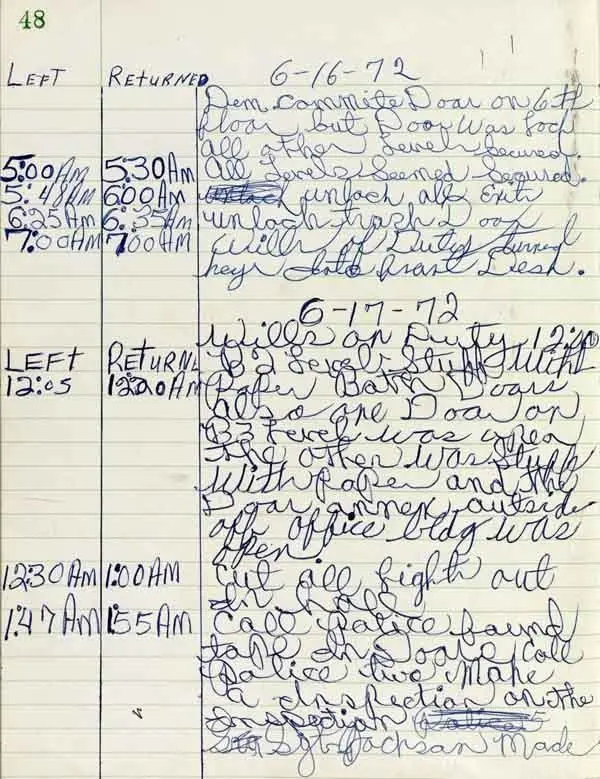 48
LEFT RETURNED 6-16-72
Dem. Commite Door on 6th
floor but Door was Loch
all other Levels Secured.
5:00 Am 5:30 Am All Levels Seemed Secured.
5:48 Am 6:00 Am unloch all Exit
6:25 Am 6:35 Am unloch trash Door
7:00 Am 7:00 Am Wills of Duty turned
keys Into Front Desk.
6-17-72
Wills on Duty 12:00
LEFT RETURN B2 Level Stuff With
12:05 12:20 Am Paper Both Doors
also one Door on
B3 Level was open,
the other was Stuff
With Paper and the
Door annex outside
off office bldg was
open
12:30 Am 1:00 AM Cut all Light out
In hall
1:47 Am 1:55 AM Call Police found
tape In Doors call
Police two Make
a Inspection on the
Inspection
Sgt Jackson Made